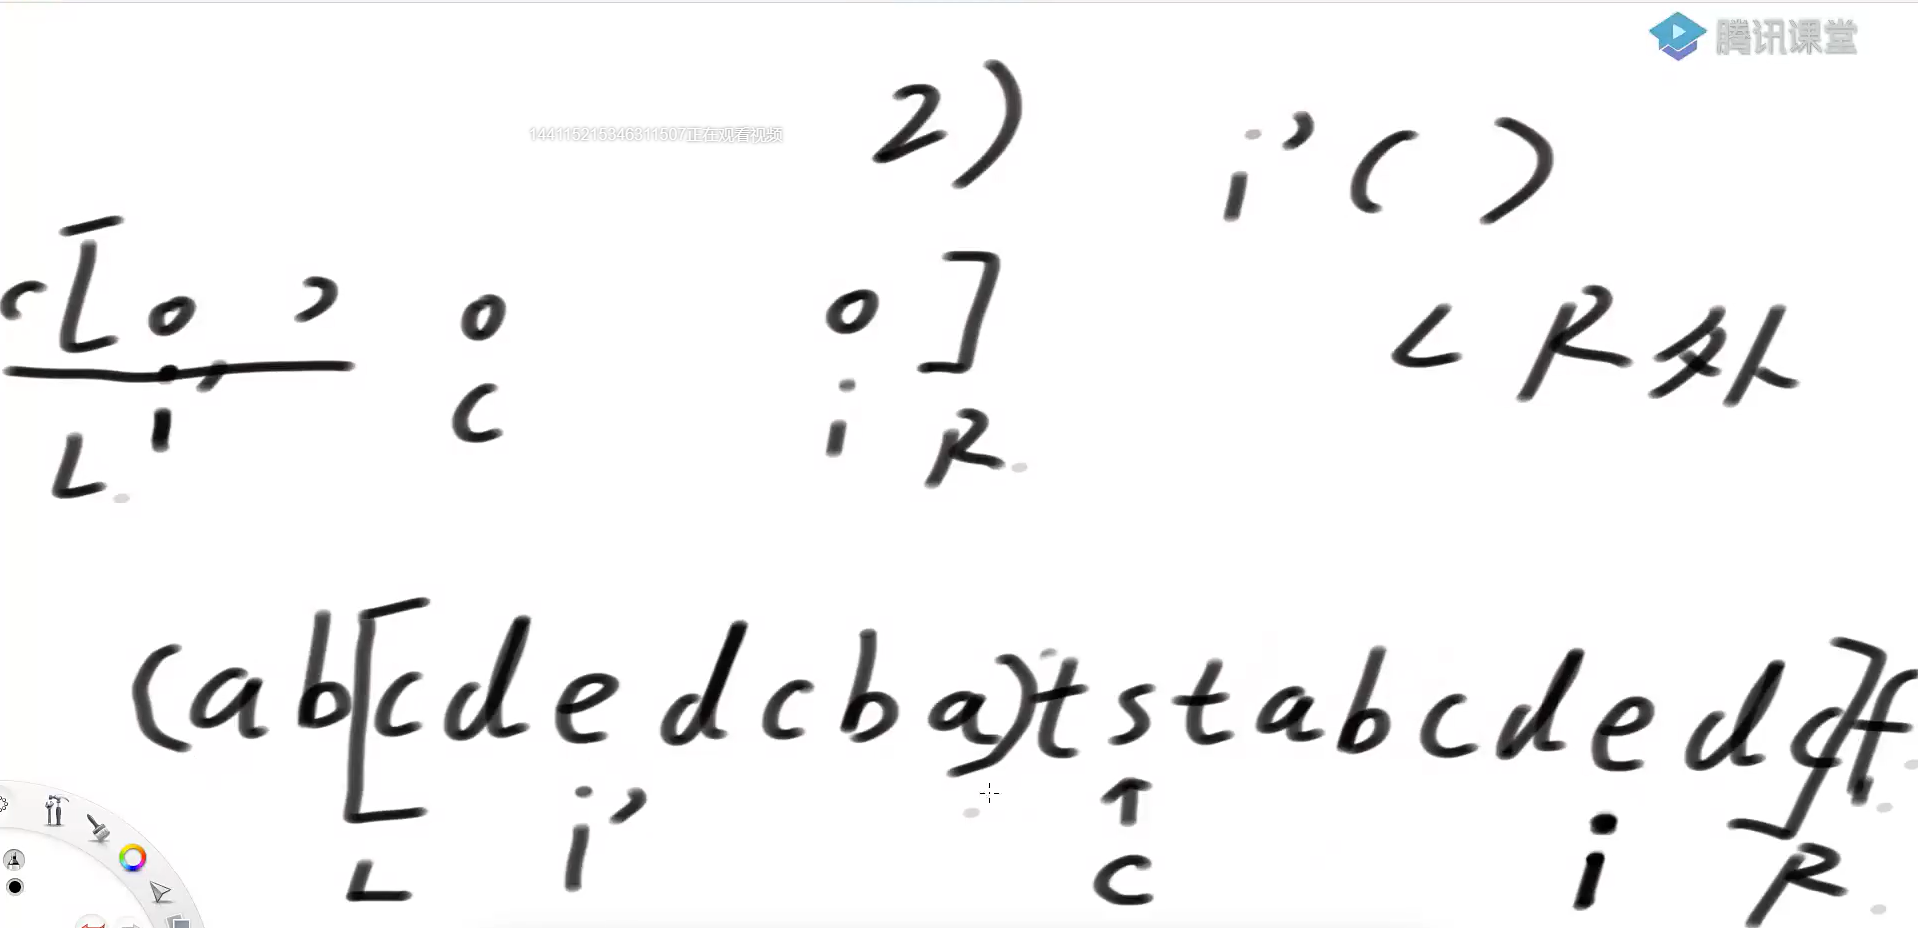 腾讯课堂
144115215346311507正在观看视频
2) i'( )
([o ) o o]
L R外
i' C i R
L
(ab[cdedcba)tstabcdedc]f
i' ↑ i
L C R